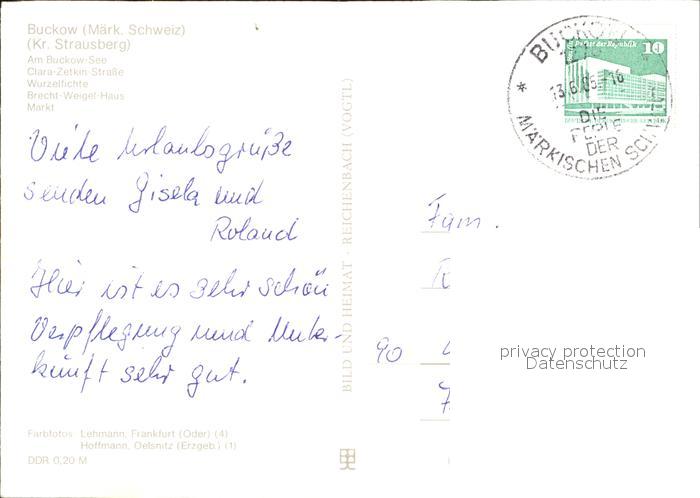 Buckow (Märk. Schweiz)
(Kr. Strausberg)
Am Buckow-See
Clara-Zetkin-Straße
Wurzelfichte
Brecht-Weigel-Haus
Markt
Viele Urlaubsgrüße
senden Gisela und
Roland
Hier ist es sehr schön
Verpflegung und Unter-
kunft sehr gut.
Farbfotos: Lehmann, Frankfurt (Oder) (4)
Hoffmann, Oelsnitz (Erzgeb.) (1)
DDR 0,20 M
BILD UND HEIMAT · REICHENBACH (VOGTL)
BUCKOW
Palast der Republik 10
DIE
PERLE
DER
MÄRKISCHEN
Fam.
90
privacy protection
Datenschutz